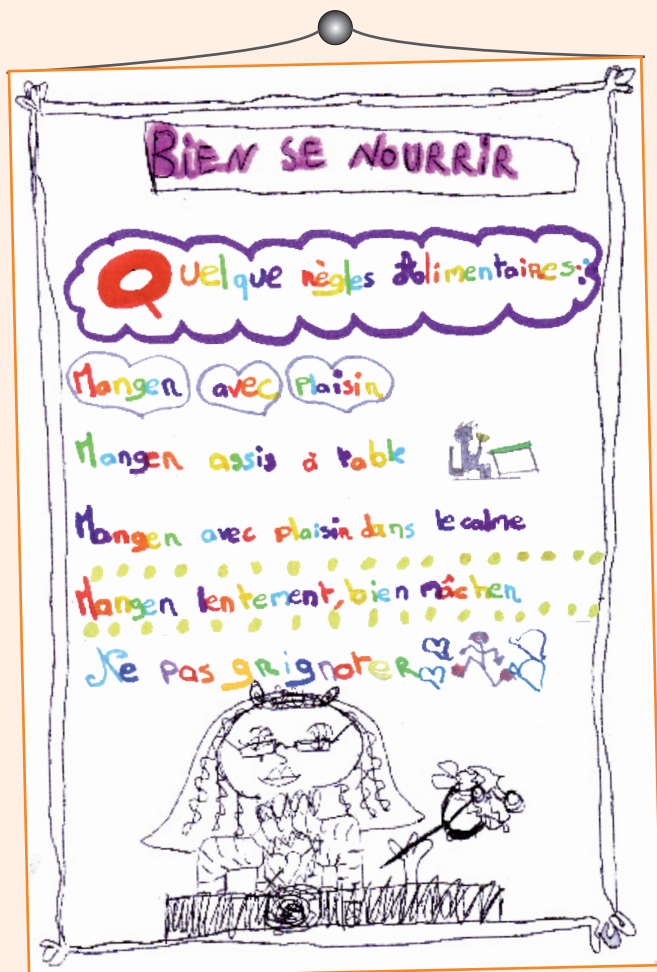 BIEN SE NOURRIR
Quelque règles Alimentaires:
Manger avec plaisir
Manger assis à table
Manger avec plaisir dans le calme
Manger lentement, bien mâcher
Ne pas grignoter